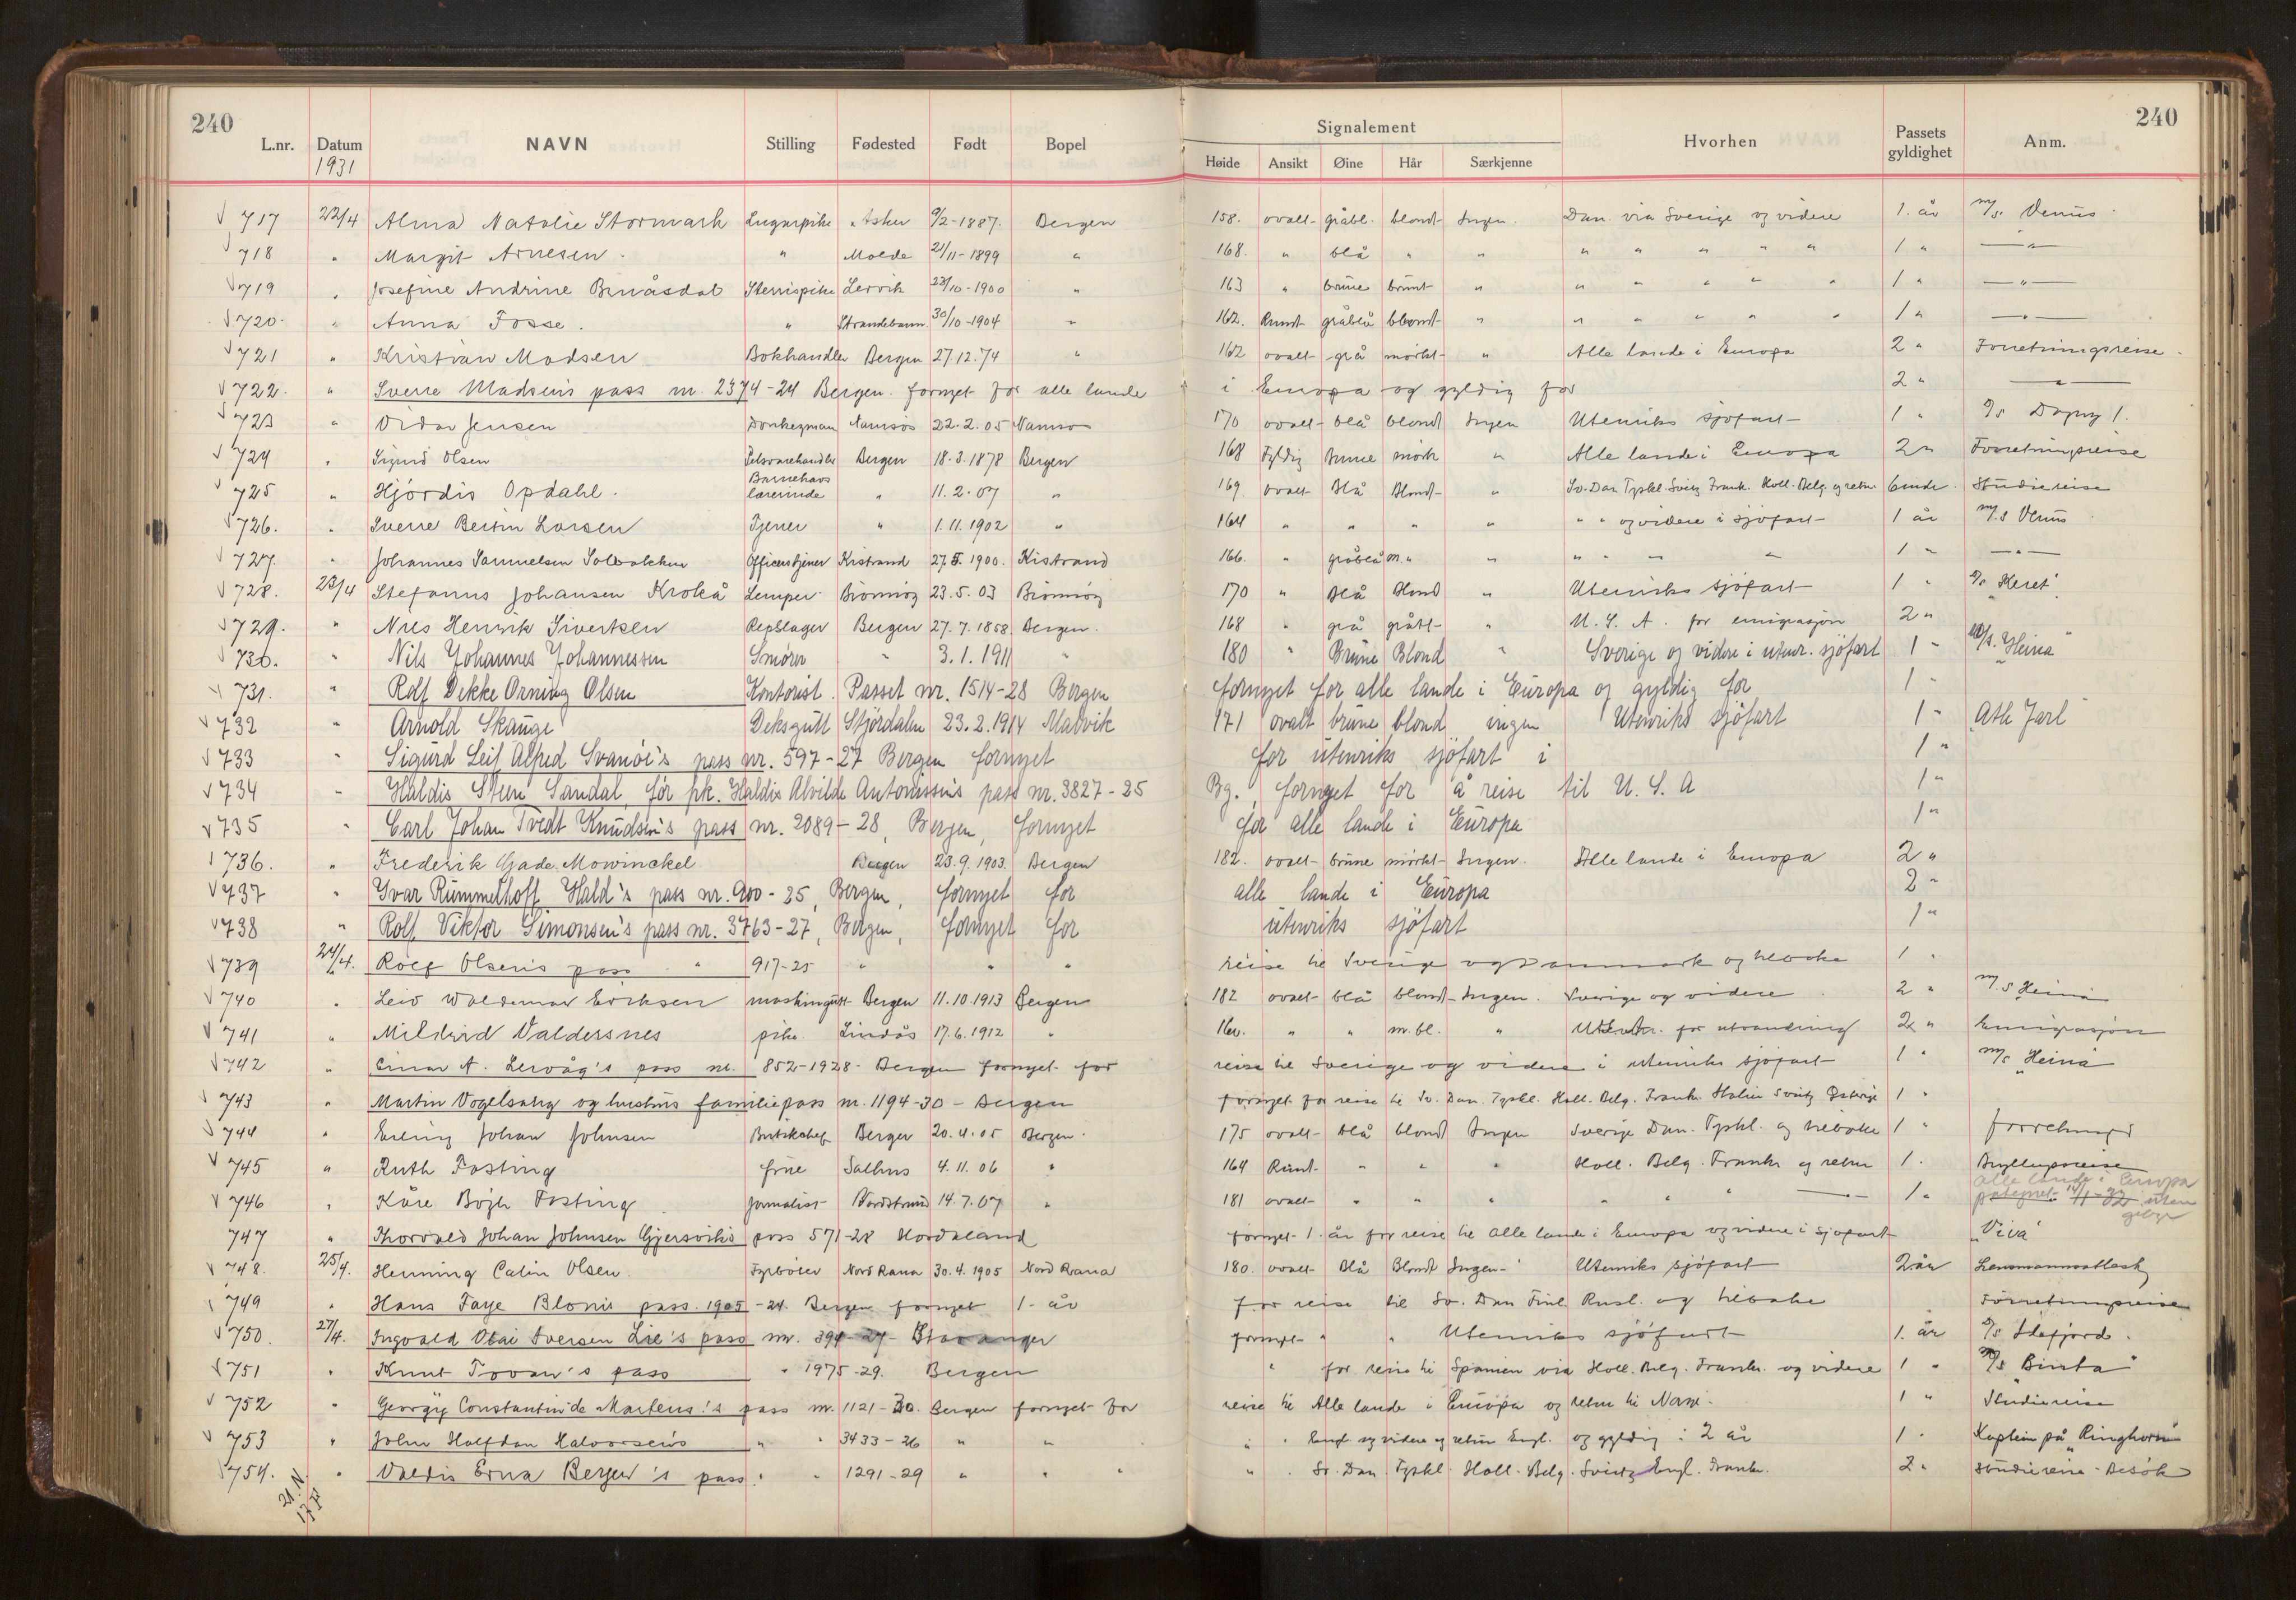 240 240
L.nr. Datum NAVN Stilling Fødested Født Bopel Signalement Hvorhen Passets gyldighet Anm.
1931 Høide Ansikt Øine Hår Særkjenne
717 22/4 Alma Natalie Stormark Lugarpike Asker 9/2-1887. Bergen 158. ovalt gråbl. blondt Ingen. Dan. via Sverige og videre 1. år m/s. Venus
718 " Margit Arnesen. " Molde 21/11-1899 " 168. " blå " " " " " " " 1 " "
719 " Josefine Andrine Benåsdal Lervik 23/10-1900 " 163 " brune brunt " " " " " " 1 " "
720. " Anna Fosse. " Strandebarm. 30/10-1904 " 162. Rundt gråblå blondt " " " " " " 1 " "
721 " Kristian Madsen Bokhandler Bergen 27.12.74 " 162 ovalt grå mørkt " Alle lande i Europa 2 " Forretningsreise.
722. " Sverre Madsen's pass nr. 2374-24 Bergen. fornyet for alle lande i Europa og gyldig for 2 " "
723 " Vidar Jensen Donkeyman Namsos 22.2.05 Namsos 170 ovalt blå blond Ingen Utenriks sjøfart 1 "
724 " Sigurd Olsen Pelsvarehandler Bergen 18.3.1878 Bergen 168 Fyldig Brune mørk " Alle lande i Europa 2 " Forretningsreise
725 " Hjördis Opdahl. Barnehavslærerinde " 11.2.07 " 169. ovalt Blå Blondt " Sv. Dan. Tyskl. Sveitz Frank. Holl. Belg. og retur 6 mdr. Studiereise
726. " Sverre Bertin Larsen Tjener " 1.11.1902 " 164 " " " " " " og videre i sjøfart 1 år m/s Venus
727. " Johannes Samuelsen Officerstjener Kistrand 27.5.1900. Kistrand 166. " gråblå m. " " " " " " 1 " "
728. 23/4 Stefanus Johansen Krokå Lemper Brönnöy 23.5.03 Brönnöy 170 " Blå Blond " Utenriks sjöfart 1 "
729. " Nils Henrik Sivertsen Repslager Bergen 27.7.1858. Bergen. 168 " grå grått " U.S.A. for emigrasjon 2 "
730. " Nils Johannes Johannessen Smører " 3.1.1911 " 180 " Brune Blond " Sverige og videre i utenr. sjøfart 1 " M/S. "Heina"
731. " Rolf Dekke Orning Olsen Kontorist. Passet nr. 1514-28 Bergen fornyet for alle lande i Europa og gyldig for 1 "
732 " Arnold Skauge Deksgutt Stjördalen 23.2.1914 Malvik 171 ovalt brune blond ingen Utenriks sjöfart 1 " "Ath Jarl"
733 " Sigurd Leif Alfred Svanöe's pass nr. 597-27 Bergen fornyet for utenriks sjöfart i 1 "
734 " Haldis Steen Sandal, før frk. Haldis Alvilde Antonissen's pass nr. 3827-25 Bg., fornyet for å reise til U.S.A 1 "
735 " Carl Johan Tvedt Knudsen's pass nr. 2089-28, Bergen, fornyet for alle lande i Europa 1 "
736. " Frederik Gade Mowinckel Bergen 23.9.1903. Bergen 182. ovalt brune mörkt Ingen. Alle lande i Europa 2 "
737 " Yvar Rummelhoff Hald's pass nr. 900-25, Bergen, fornyet for alle lande i Europa 2 "
738 " Rolf Viktor Simonsen's pass nr. 3763-27, Bergen, fornyet for utenriks sjöfart 1 "
739 24/4. Rolf Olsen's pass " 917-25 " " " reise til Sverige og Danmark og tilbake 1 "
740 " Leiv Waldemar Eriksen maskingutt Bergen 11.10.1913 Bergen 182 ovalt blå blondt Ingen. Sverige og videre 2 " m/s Heina
741 " Mildrid Valdersnes pike. Lindås 17.6.1912 " " " m. bl. " for utvandring 2 " Emigrasjon
742 " Einar A. Lervåg's pass nr. 852-1928 - Bergen fornyet for reise til Sverige og videre i utenriks sjöfart 1 " m/s "Heina"
743 " Martin Vogelsang og hustrus familiepass nr. 1194-30 - Bergen fornyet for reise til Sv. Dan. Tyskl. Holl. Belg. Frankr. Italien Sveitz Østerige 1 "
744 " Erling Johan Johnsen Bergen 20.4.05 Bergen. 175 ovalt Blå blond Ingen Sverige Dan. Tyskl. og tilbake 1 "
745 " Ruth Fasting frue Salhus 4.11.06 " 164 Rundt " " " Holl. Belg. Frankr. og retur 1. Bryllupsreise
746 " Kåre Böjle Fasting Journalist Nordstrand 14.7.07 " 181 ovalt " " " " " " 1 " alle lande i Europa uten gebyr
747 " Thorvald Johan Johnsen Gjersviks pass 571-28 Hordaland fornyet 1. år for reise til alle lande i Europa og videre i sjøfart "Viva"
748. 25/4. Henning Calin Olsen. Fyrböter Nord Rana 30.4.1905 Nord Rana 180. ovalt Blå Blondt Ingen Utenriks sjöfart 2 år Lensmannsattest
749 " Hans Faye Blom's pass. 1905-24. Bergen fornyet 1. år for reise til Sv. Dan Finl. Rusl. og tilbake Forretningsreise
750. 27/4. Ingvald Iversen Lie's pass nr. 394-27- Stavanger fornyet " " Utenriks sjöfart 1. år
751 " Knut Tovan's pass " 1975-29. Bergen " for reise til Spanien via Holl. Belg. Frankr. og videre 1 "
752 " Georgij Constantin de Martens's pass nr. 1121-30. Bergen fornyet for reise til Alle lande i Europa og retur til Norge. 1 " Studiereise
753 " John Halfdan Halvorsen's " " 3433-26 " " " " Engl. og videre og retur Engl. og gyldig i 2 år 1. Kaptein på "Ringhorn"
754. " Valdis Erna Berger's pass. " " 1291-29 " " " " " Sv. Dan Tyskl. Holl. Belg. Sveitz Engl. Frankr. 2 " Studiereise - Besök
21 N.
17 F